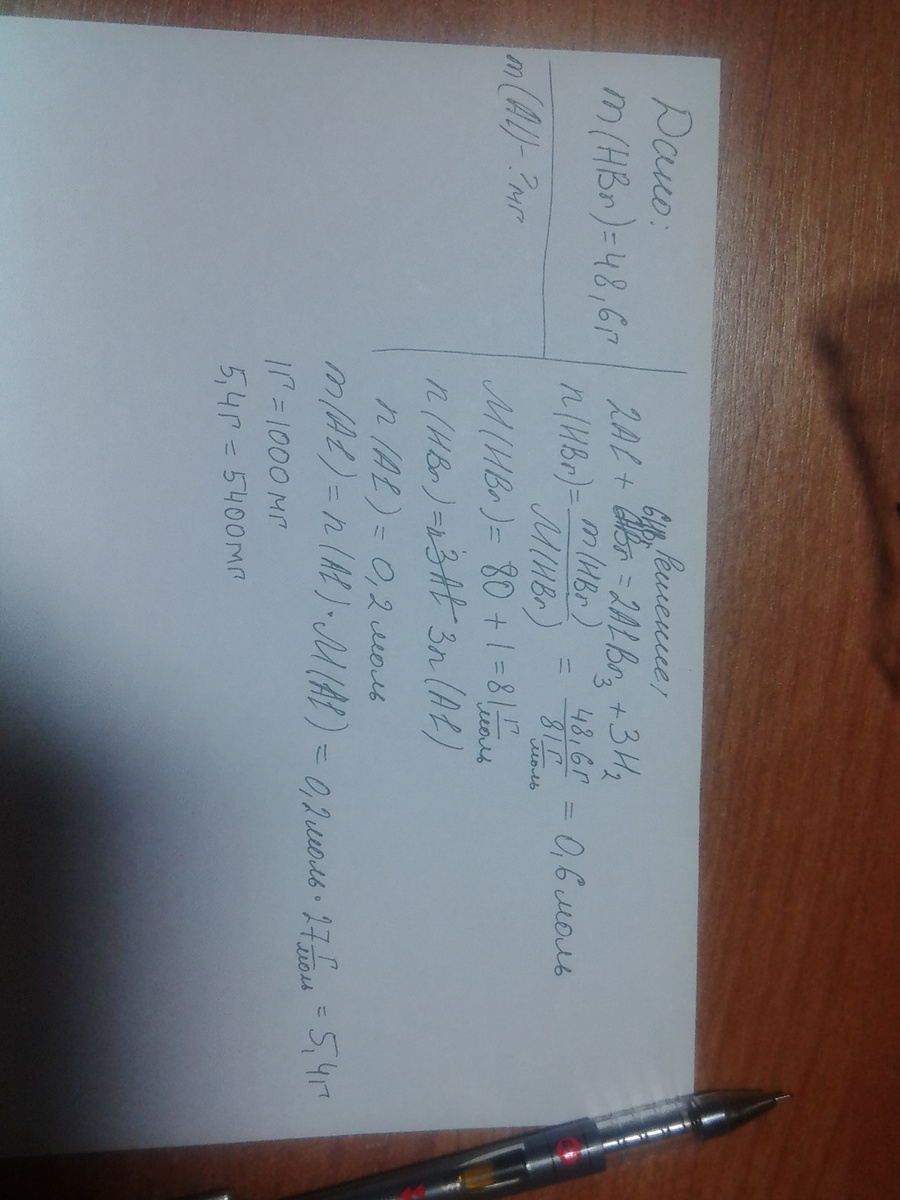 Дано:
m(HBr)=48,6г
m(Al)-?мг
Решение:
2Al + 6HBr = 2AlBr3 + 3H2
n(HBr) = m(HBr)/M(HBr) = 48,6г/81 г/моль = 0,6 моль
M(HBr) = 80 + 1 = 81 г/моль
n(HBr) = 3n(Al)
n(Al) = 0,2 моль
m(Al) = n(Al) · M(Al) = 0,2 моль · 27 г/моль = 5,4г
1г = 1000 мг
5,4г = 5400мг